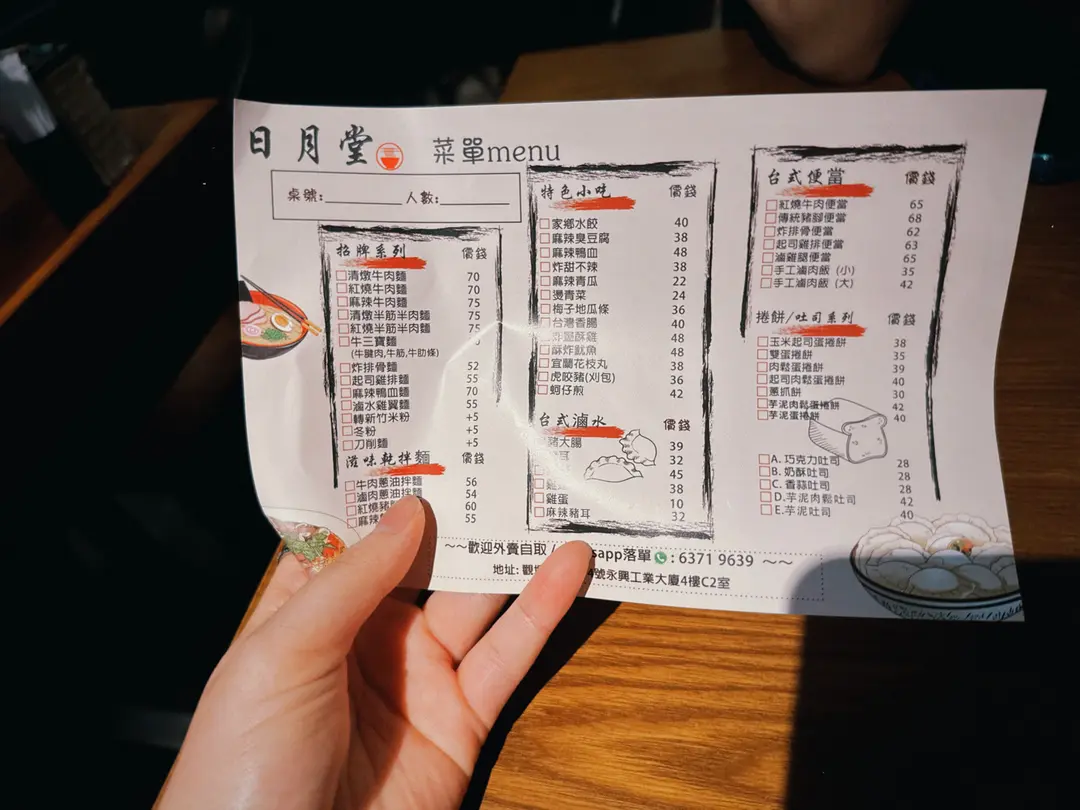 日月堂 菜單menu
桌號:________ 人數:________
招牌系列 價錢
清燉牛肉麵 70
紅燒牛肉麵 70
麻辣牛肉麵 75
清燉半筋半肉麵 75
紅燒半筋半肉麵 75
牛三寶麵
(牛腱肉,牛筋,牛肋條)
炸排骨麵 52
起司雞排麵 55
麻辣鴨血麵 70
滷水雞翼麵 55
轉新竹米粉 +5
冬粉 +5
刀削麵 +5
滋味乾拌麵 價錢
牛肉蔥油拌麵 56
滷肉蔥油拌麵 54
紅燒豬 60
麻辣 55
特色小吃 價錢
家鄉水餃 40
麻辣臭豆腐 38
麻辣鴨血 48
炸甜不辣 38
麻辣青瓜 22
燙青菜 24
梅子地瓜條 36
台灣香腸 40
酥雞 48
酥炸魷魚 48
宜蘭花枝丸 38
虎咬豬(刈包) 36
蚵仔煎 42
台式滷水 價錢
豬大腸 39
耳 32
45
38
雞蛋 10
麻辣豬耳 32
台式便當 價錢
紅燒牛肉便當 65
傳統豬腳便當 68
炸排骨便當 62
起司雞排便當 63
滷雞腿便當 65
手工滷肉飯 (小) 35
手工滷肉飯 (大) 42
捲餅/吐司系列 價錢
玉米起司蛋捲餅 38
雙蛋捲餅 35
肉鬆蛋捲餅 39
起司肉鬆蛋捲餅 40
蔥抓餅 30
芋泥肉鬆蛋捲餅 42
芋泥蛋捲餅 40
A. 巧克力吐司 28
B. 奶酥吐司 28
C. 香蒜吐司 28
D.芋泥肉鬆吐司 42
E.芋泥吐司 40
~~歡迎外賣自取 / sapp落單 : 6371 9639 ~~
地址: 觀 4號永興工業大廈4樓C2室